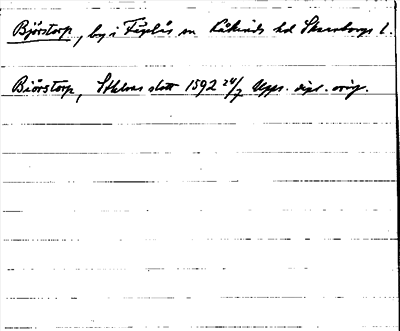 Björstorp, by i Fägelås sn Kåkinds hd Skaraborgs l.
Biörstorp, Sthlms slott 1592 24/7 Upps. dipl. orig.